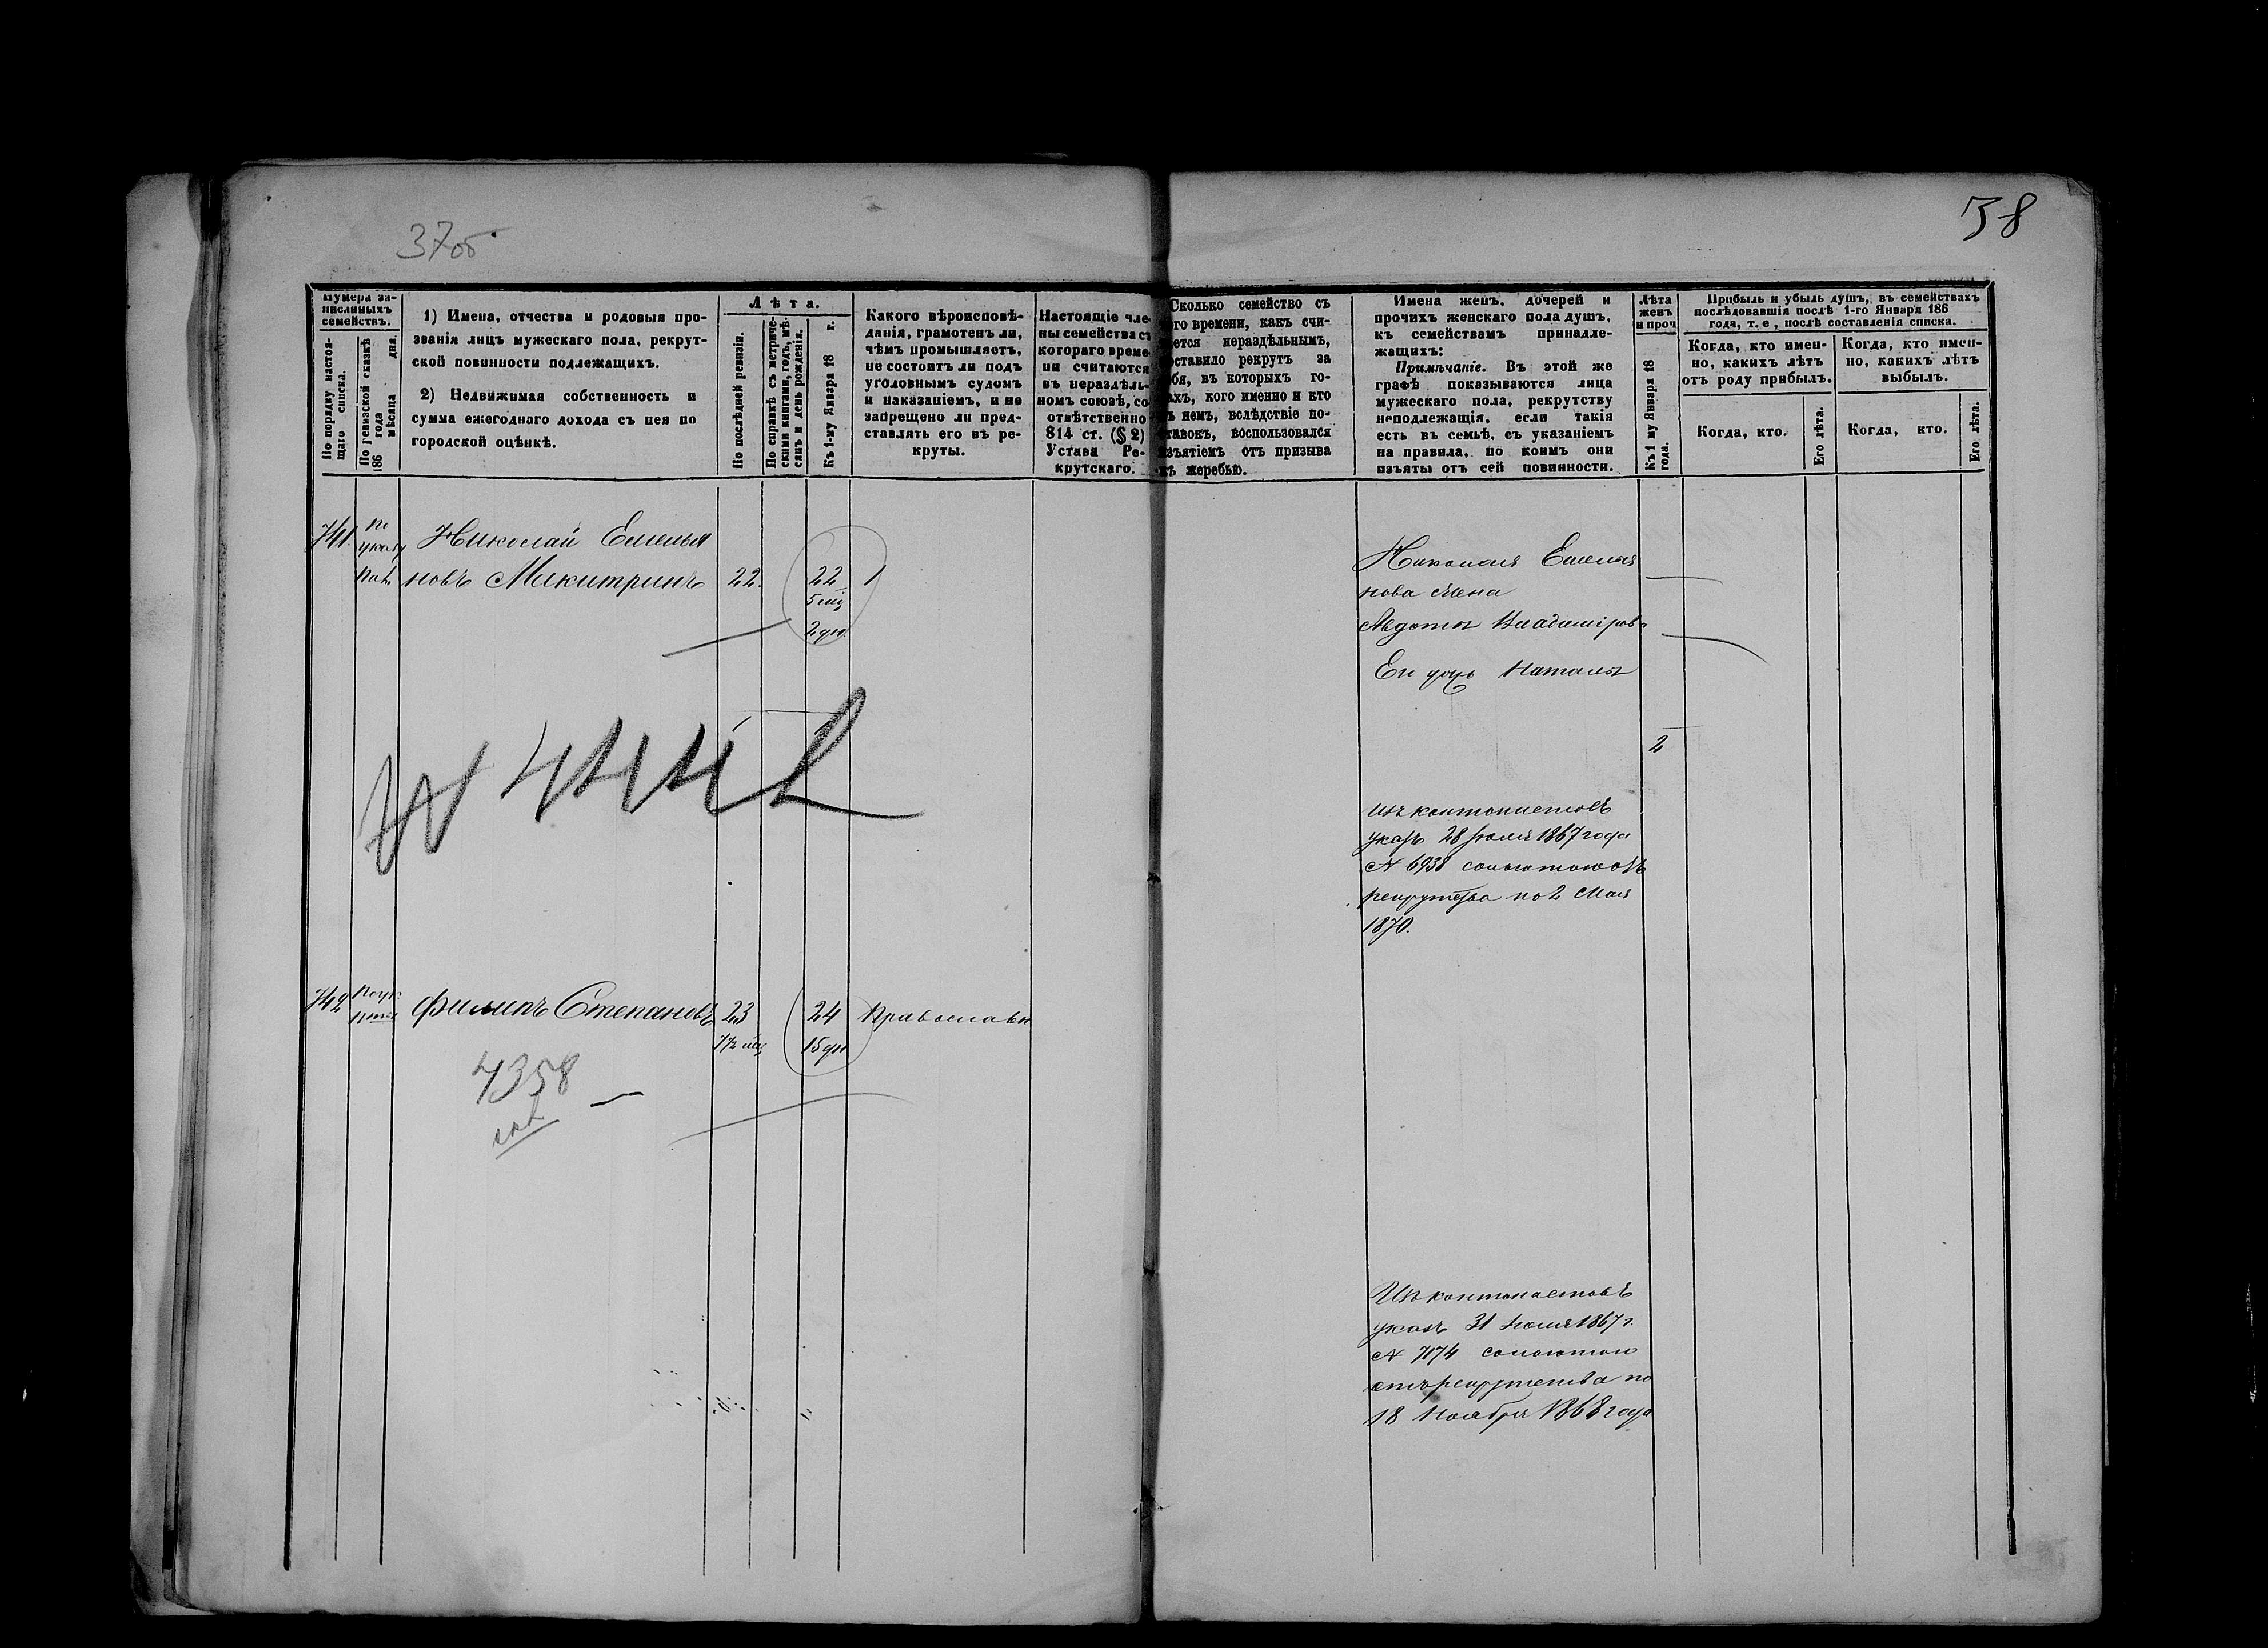 37об
38
Нумера записанныхъ семействъ.
По порядку настоящаго списка.
По ревизской сказкѣ 186 года мѣсяца дня.
1) Имена, отчества и родовыя прозванія лицъ мужескаго пола, рекрутской повинности подлежащихъ.
2) Недвижимая собственность и сумма ежегоднаго дохода съ нея по городской оцѣнкѣ.
Лѣта.
По послѣдней ревизіи.
По справкѣ съ метрическими книгами, годъ, мѣсяцъ и день рожденія.
Къ 1-му Января 18 г.
Какого вѣроисповѣданія, грамотенъ ли, чѣмъ промышляетъ, не состоитъ ли подъ уголовнымъ судомъ и наказаніемъ, и не запрещено ли представлять его въ рекруты.
Настоящіе члены семейства съ котораго времени считаются въ нераздѣльномъ союзѣ, соотвѣтственно 814 ст. (§ 2) Устава Рекрутскаго.
Сколько семейство съ
го времени, какъ счи-
ется нераздѣльнымъ,
оставило рекрутъ за
бя, въ которыхъ го-
ахъ, кого именно и кто
ъ нем, вслѣдствіе по-
тавокъ, воспользовался
изъятіемъ отъ призыва
къ жеребью.
Имена женъ, дочерей и
прочихъ женскаго пола душъ,
къ семействамъ принадле-
жащихъ:
Примѣчаніе. Въ этой же
графѣ показываются лица
мужескаго пола, рекрутству
неподлежащія, если такія
есть въ семьѣ, съ указаніемъ
на правила, по коимъ они
изъяты отъ сей повинности.
Лѣта женъ и проч
Къ 1 му Января 18 года.
Прибыль и убыль душъ, въ семействахъ
послѣдовавшія послѣ 1-го Января 186
года, т. е, послѣ составленія списка.
Когда, кто имен-
но, какихъ лѣтъ
отъ роду прибылъ.
Когда, кто имен-
но, какихъ лѣтъ
выбылъ.
Когда, кто.
Его лѣта.
Когда, кто.
Его лѣта.
741. По указу Николай Емелья
новъ Микитринъ 22. 22
5 мц
2 дн.
Николая Емелья
нова жена
Авдотья Владимірова
Его дочь Наталья
2
Изъ кантонистовъ
указъ 28 Іюля 1867 года
№ 6938 сольготою отъ
рекрутства по 2 Мая
1870.
742 Филипъ Степановъ 23 24 Православн
7½ мц 15 дн
4358
Изъ кантонистовъ
указъ 31 Іюля 1867 г.
№ 7174 сольготою
отърекрутства по
18 Ноября 1868 года